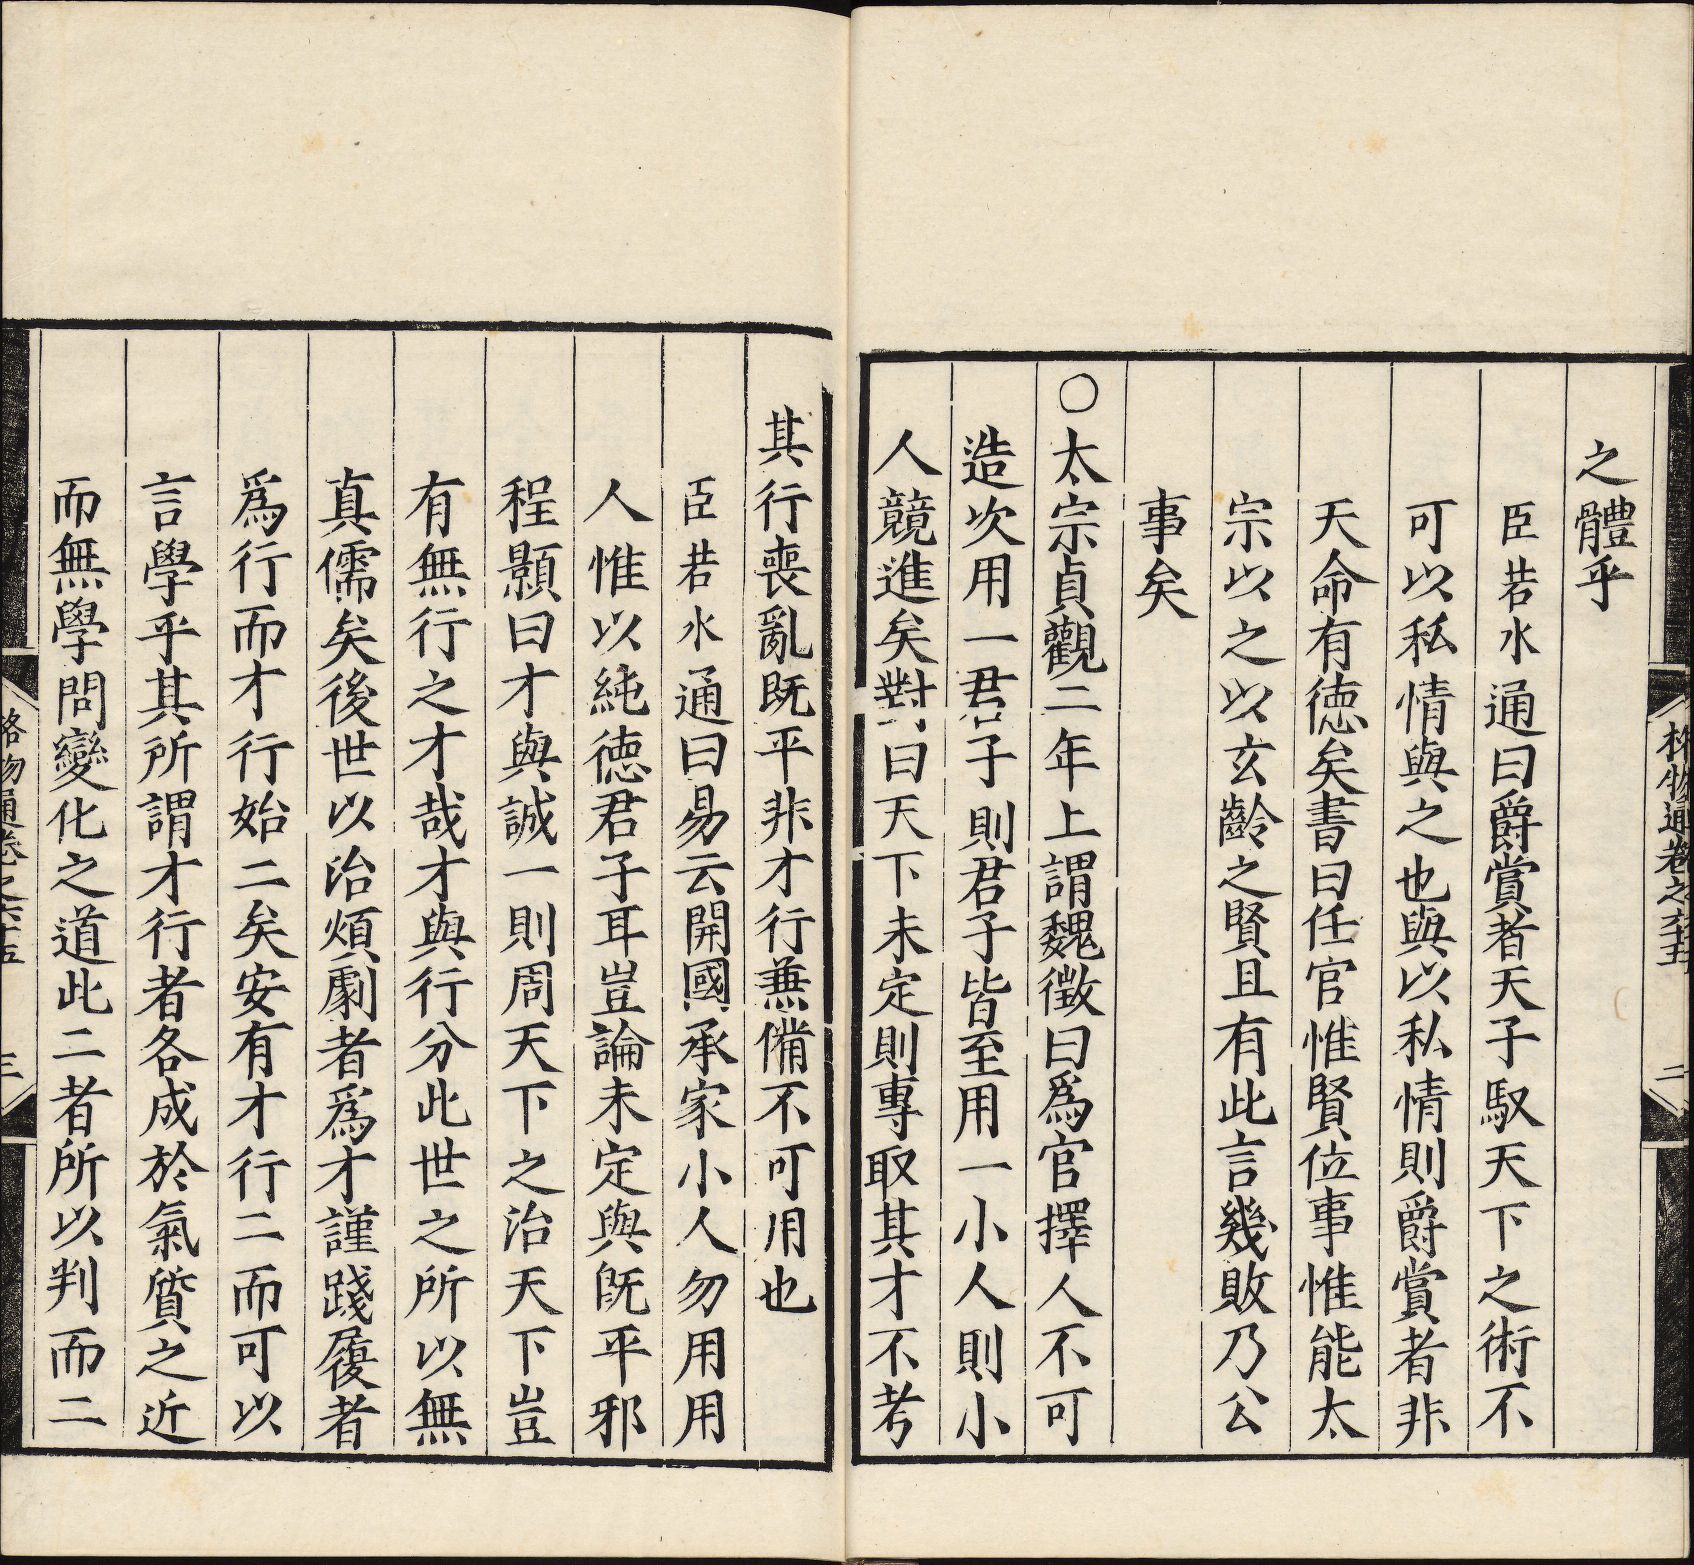 之體乎
臣若水通曰爵賞者天子馭天下之術不
可以私情與之也與以私情則爵賞者非
天命有德矣書曰任官惟賢位事惟能太
宗以之以玄齡之賢且有此言幾敗乃公
事矣
○太宗貞觀二年上謂魏徵曰爲官擇人不可
造次用一君子則君子皆至用一小人則小
人競進矣對曰天下未定則專取其才不考
格物通卷之六十五 二
其行喪亂既平非才行兼備不可用也
臣若水通曰易云開國承家小人勿用用
人惟以純德君子耳豈論未定與既平邪
程顥曰才與誠一則周天下之治天下豈
有無行之才哉才與行分此世之所以無
真儒矣後世以治煩劇者爲才謹踐履者
爲行而才行始二矣安有才行二而可以
言學乎其所謂才行者各成於氣質之近
而無學問變化之道此二者所以判而二
格物通卷之六十五 三